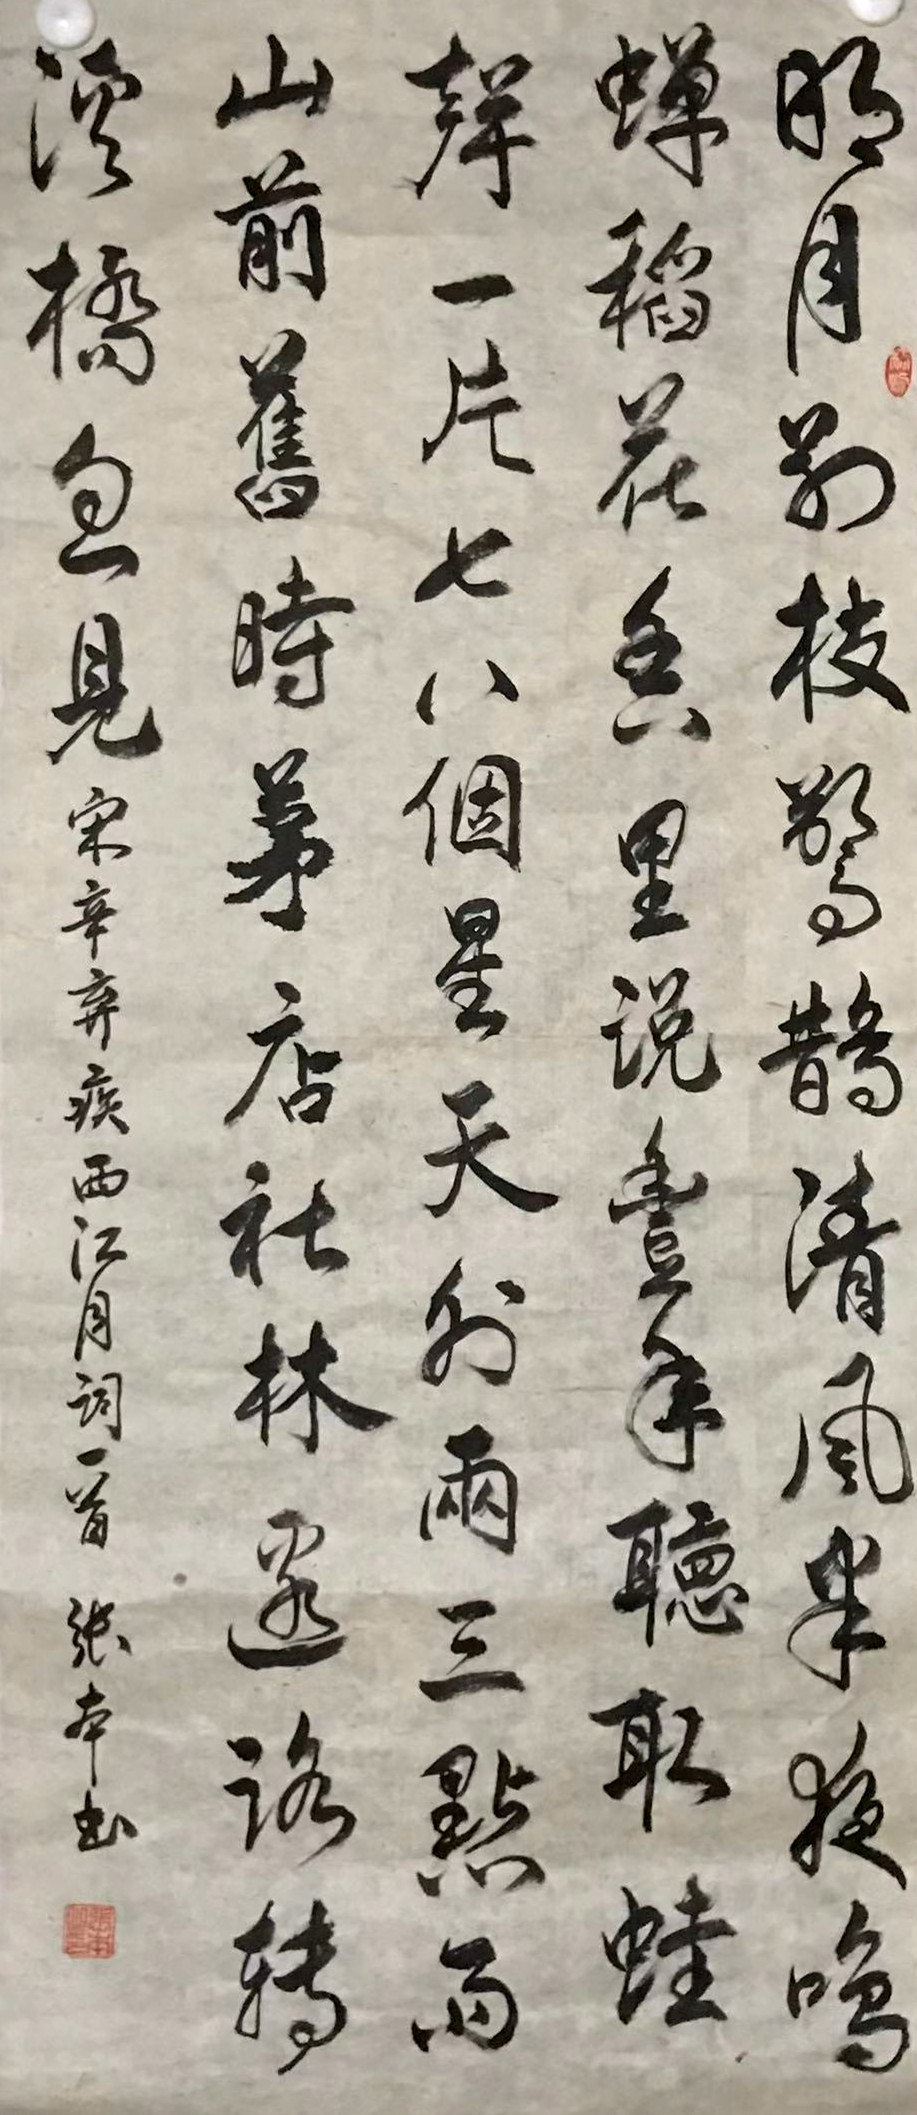 明月别枝驚鹊清風半夜鸣
蝉稻花香里说豊年聽取蛙
聲一片七八個星天外兩三點雨
山前舊時茅店社林邊路轉
溪橋忽見
宋辛弃疾西江月词一首 張本书